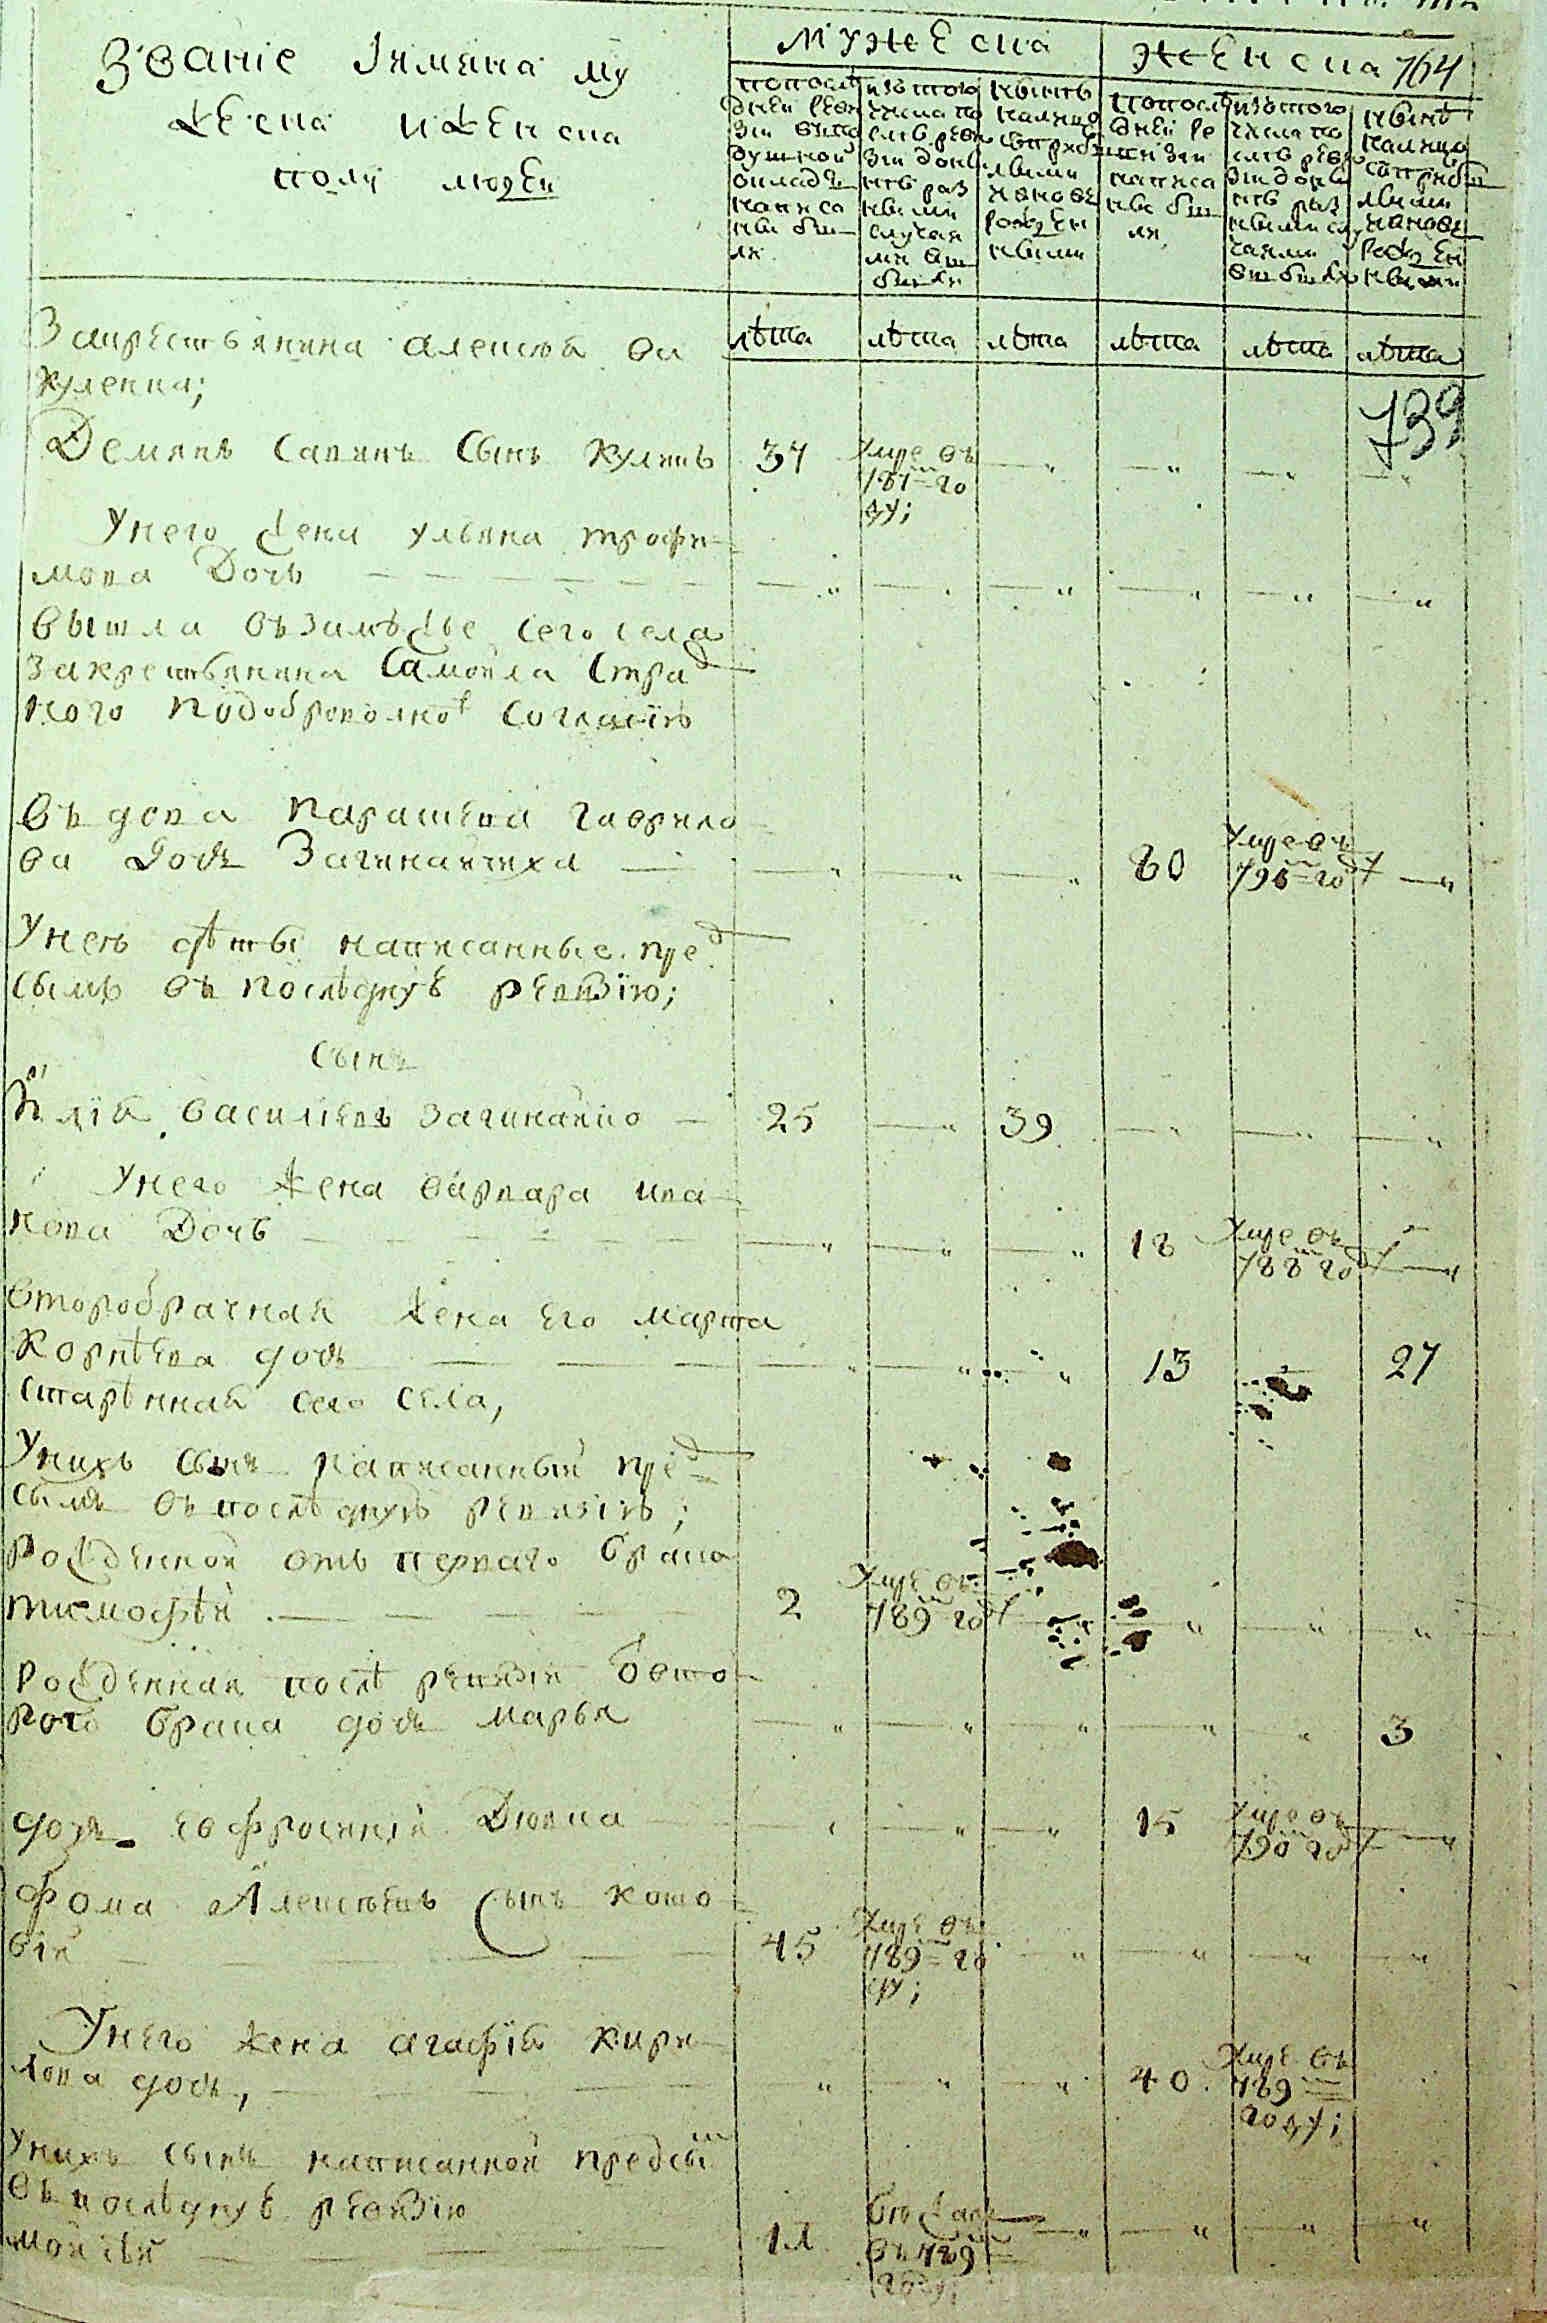 Званіе Іимяна му
жеска иженска
полу людеи
мужеска
женска 764
пополѣ
днеи реви
зіи вьпо
душном
окладѣ
написа
ны бы
ли
изтого
числа по
слѣ реви
зіи донынѣ
раз
ными
случая
ми вы
были
нынѣ
налицо
сприбы
лыми
иновъ
рожден
ными
пополѣ
днеи ре
визіи
написа
ны бы
ли
изтого
числа по
слѣ реви
зіи доны
нѣ раз
ными слу
чаями
выбыли
нынѣ
налицо
сприбы
лыми
иновъ
рожден
ными
лѣта лѣта лѣта лѣта лѣта лѣта
Закрестьянина Алексѣя Ва
куленка;
739
Демянъ Савинъ Сынъ Кулишъ 37 Умре въ
787м го
ду;
Унего жена Ульяна Трофи
мова Дочь
вышла въ замужье сего села
закрестьянина Самоила Стра
кого подобровольной согласію
вьдова Параскева Гаврило
ва дочь Загинайчиха 60 Умре въ
796м году
Унею дѣты написанные пред
сымъ въ послѣднуѣ ревизію;
сынъ
Илія Василіевъ Загинайко 25 39
Унего жена Варвара Ива
нова Дочь 18 Умре въ
788м году
Второбрачная жена его Марта
Корнѣева дочь 13 27
старѣнная сего села,
Унихъ сынъ написанный пред
сымъ въ послѣднуѣ ревизію;
Рожденной отъ перваго брака
Тимофѣй 2 Умре въ
789м году
Рожденная послѣ ревизіи ѿ вто
рого брака дочь Марья 3
дочь Еофросинія Дювка 15 Умре въ
790м году
Фома Алексѣевъ Сынъ Кото
вій 45 Умре въ
789м го
ду;
Унего жена Агафія Кири
лова дочь, 40 Умре въ
789м
году;
Унихъ сынъ написанной предсым
въ послѣднуѣ ревизію
Моисѣй 11 Бежалъ
въ 789м
году;